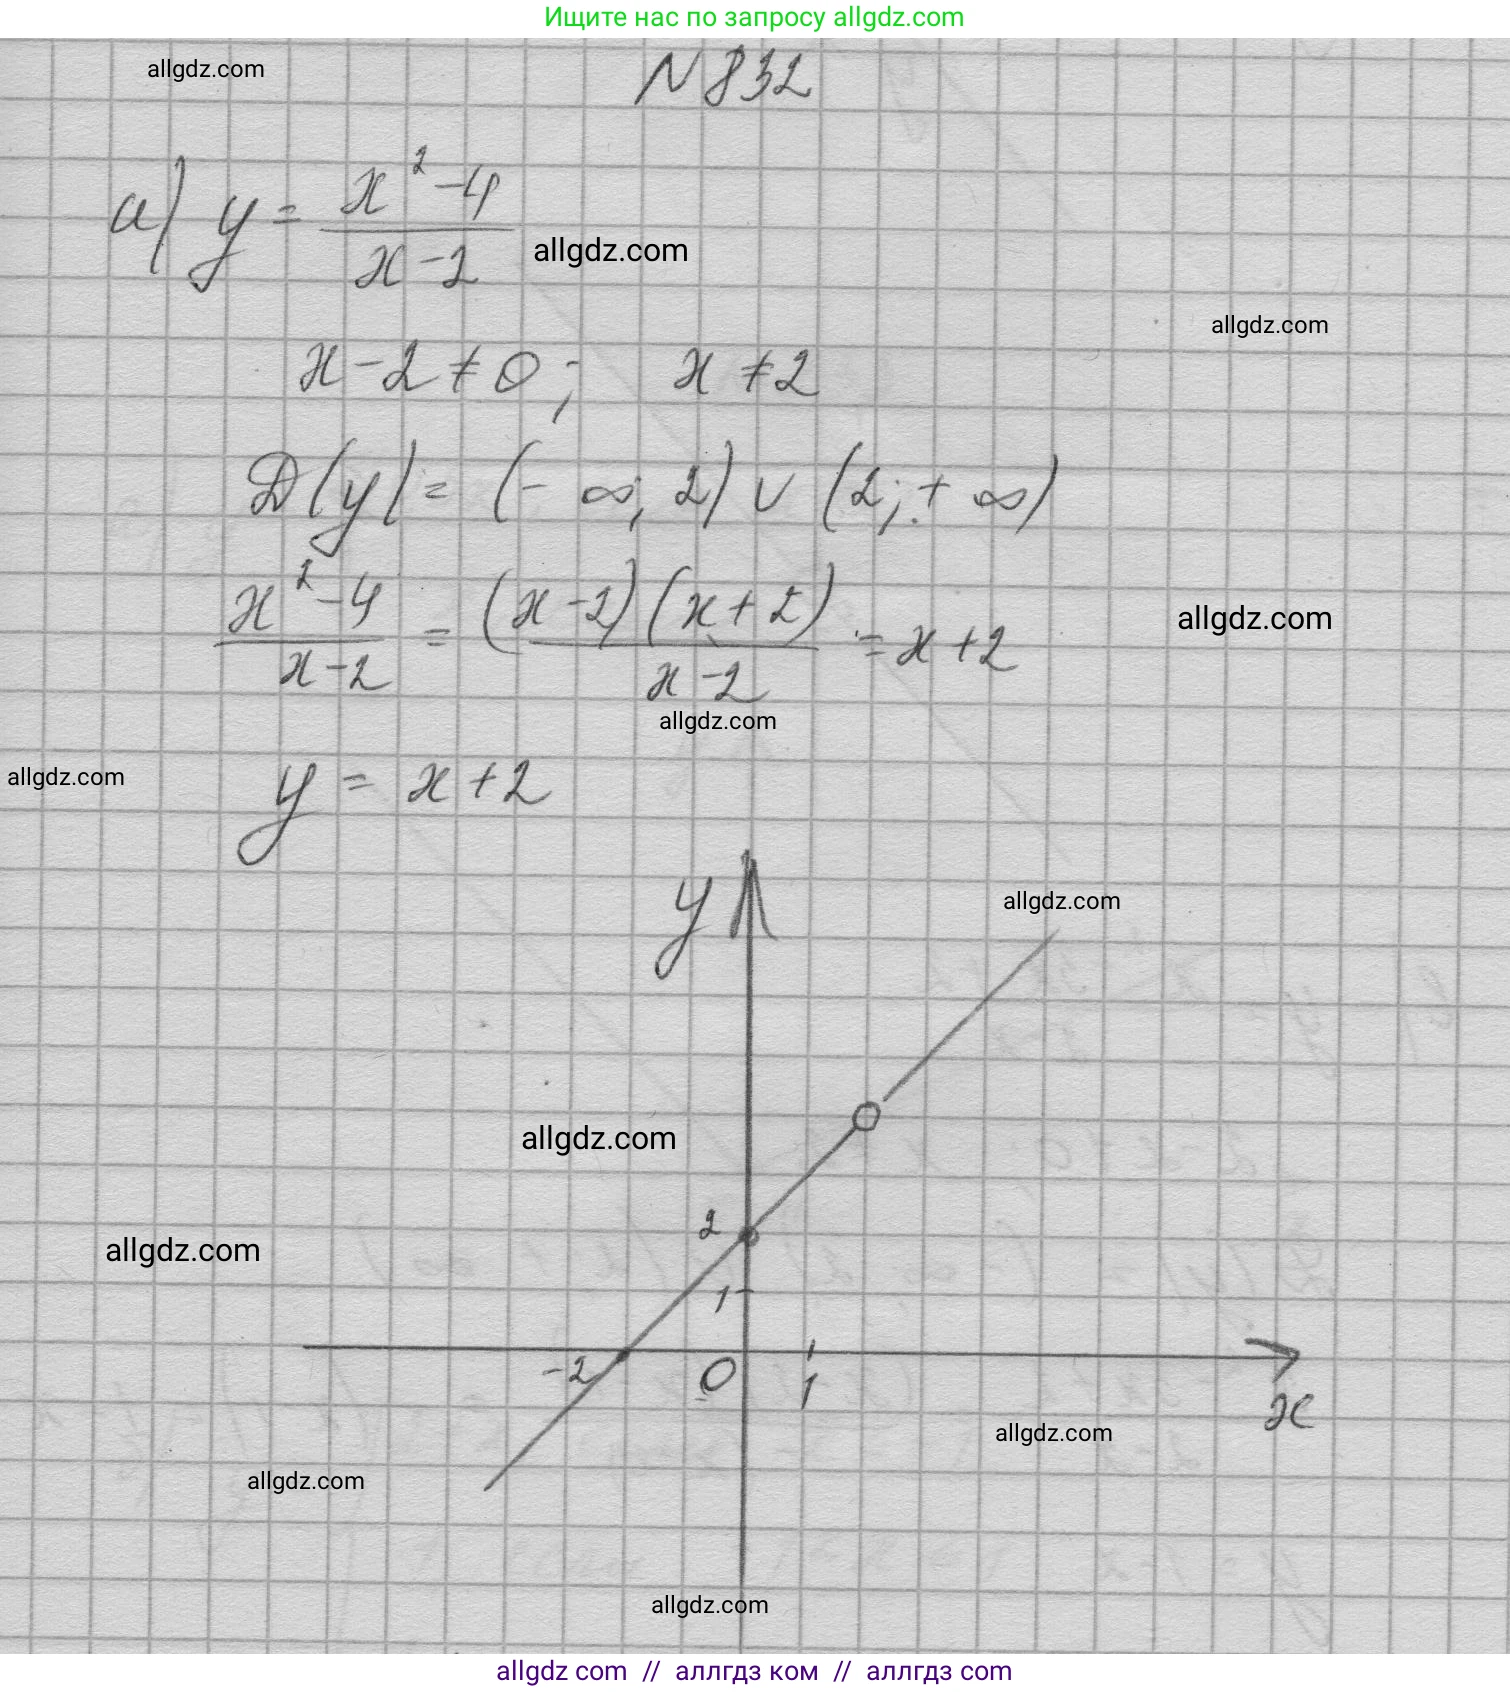 Ищите нас по запросу allgdz.com
allgdz.com
N 832
а) y = (x² - 4)/(x - 2)
allgdz.com
allgdz.com
x - 2 ≠ 0; x ≠ 2
D(y) = (-∞; 2) ∪ (2; +∞)
(x² - 4)/(x - 2) = ((x - 2)(x + 2))/(x - 2) = x + 2
allgdz.com
allgdz.com
allgdz.com
y = x + 2
y
allgdz.com
allgdz.com
2
allgdz.com
1
-2 0 1
x
allgdz.com
allgdz.com
allgdz.com
allgdz com // аллгдз ком // аллгдз com